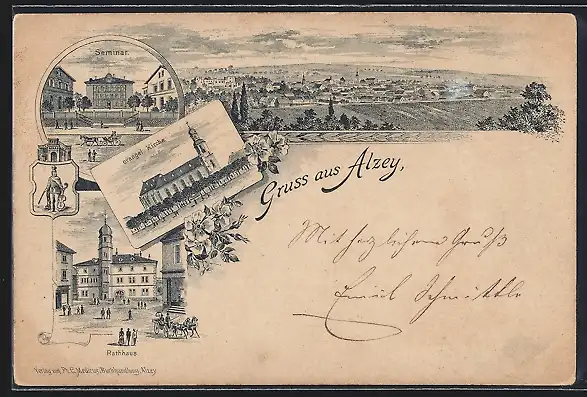 Seminar.
evangel. Kirche
Gruss aus Alzey,
Mit herzlichem Gruß
Emil
Rathhaus.
Verlag von Buchhandlung, Alzey